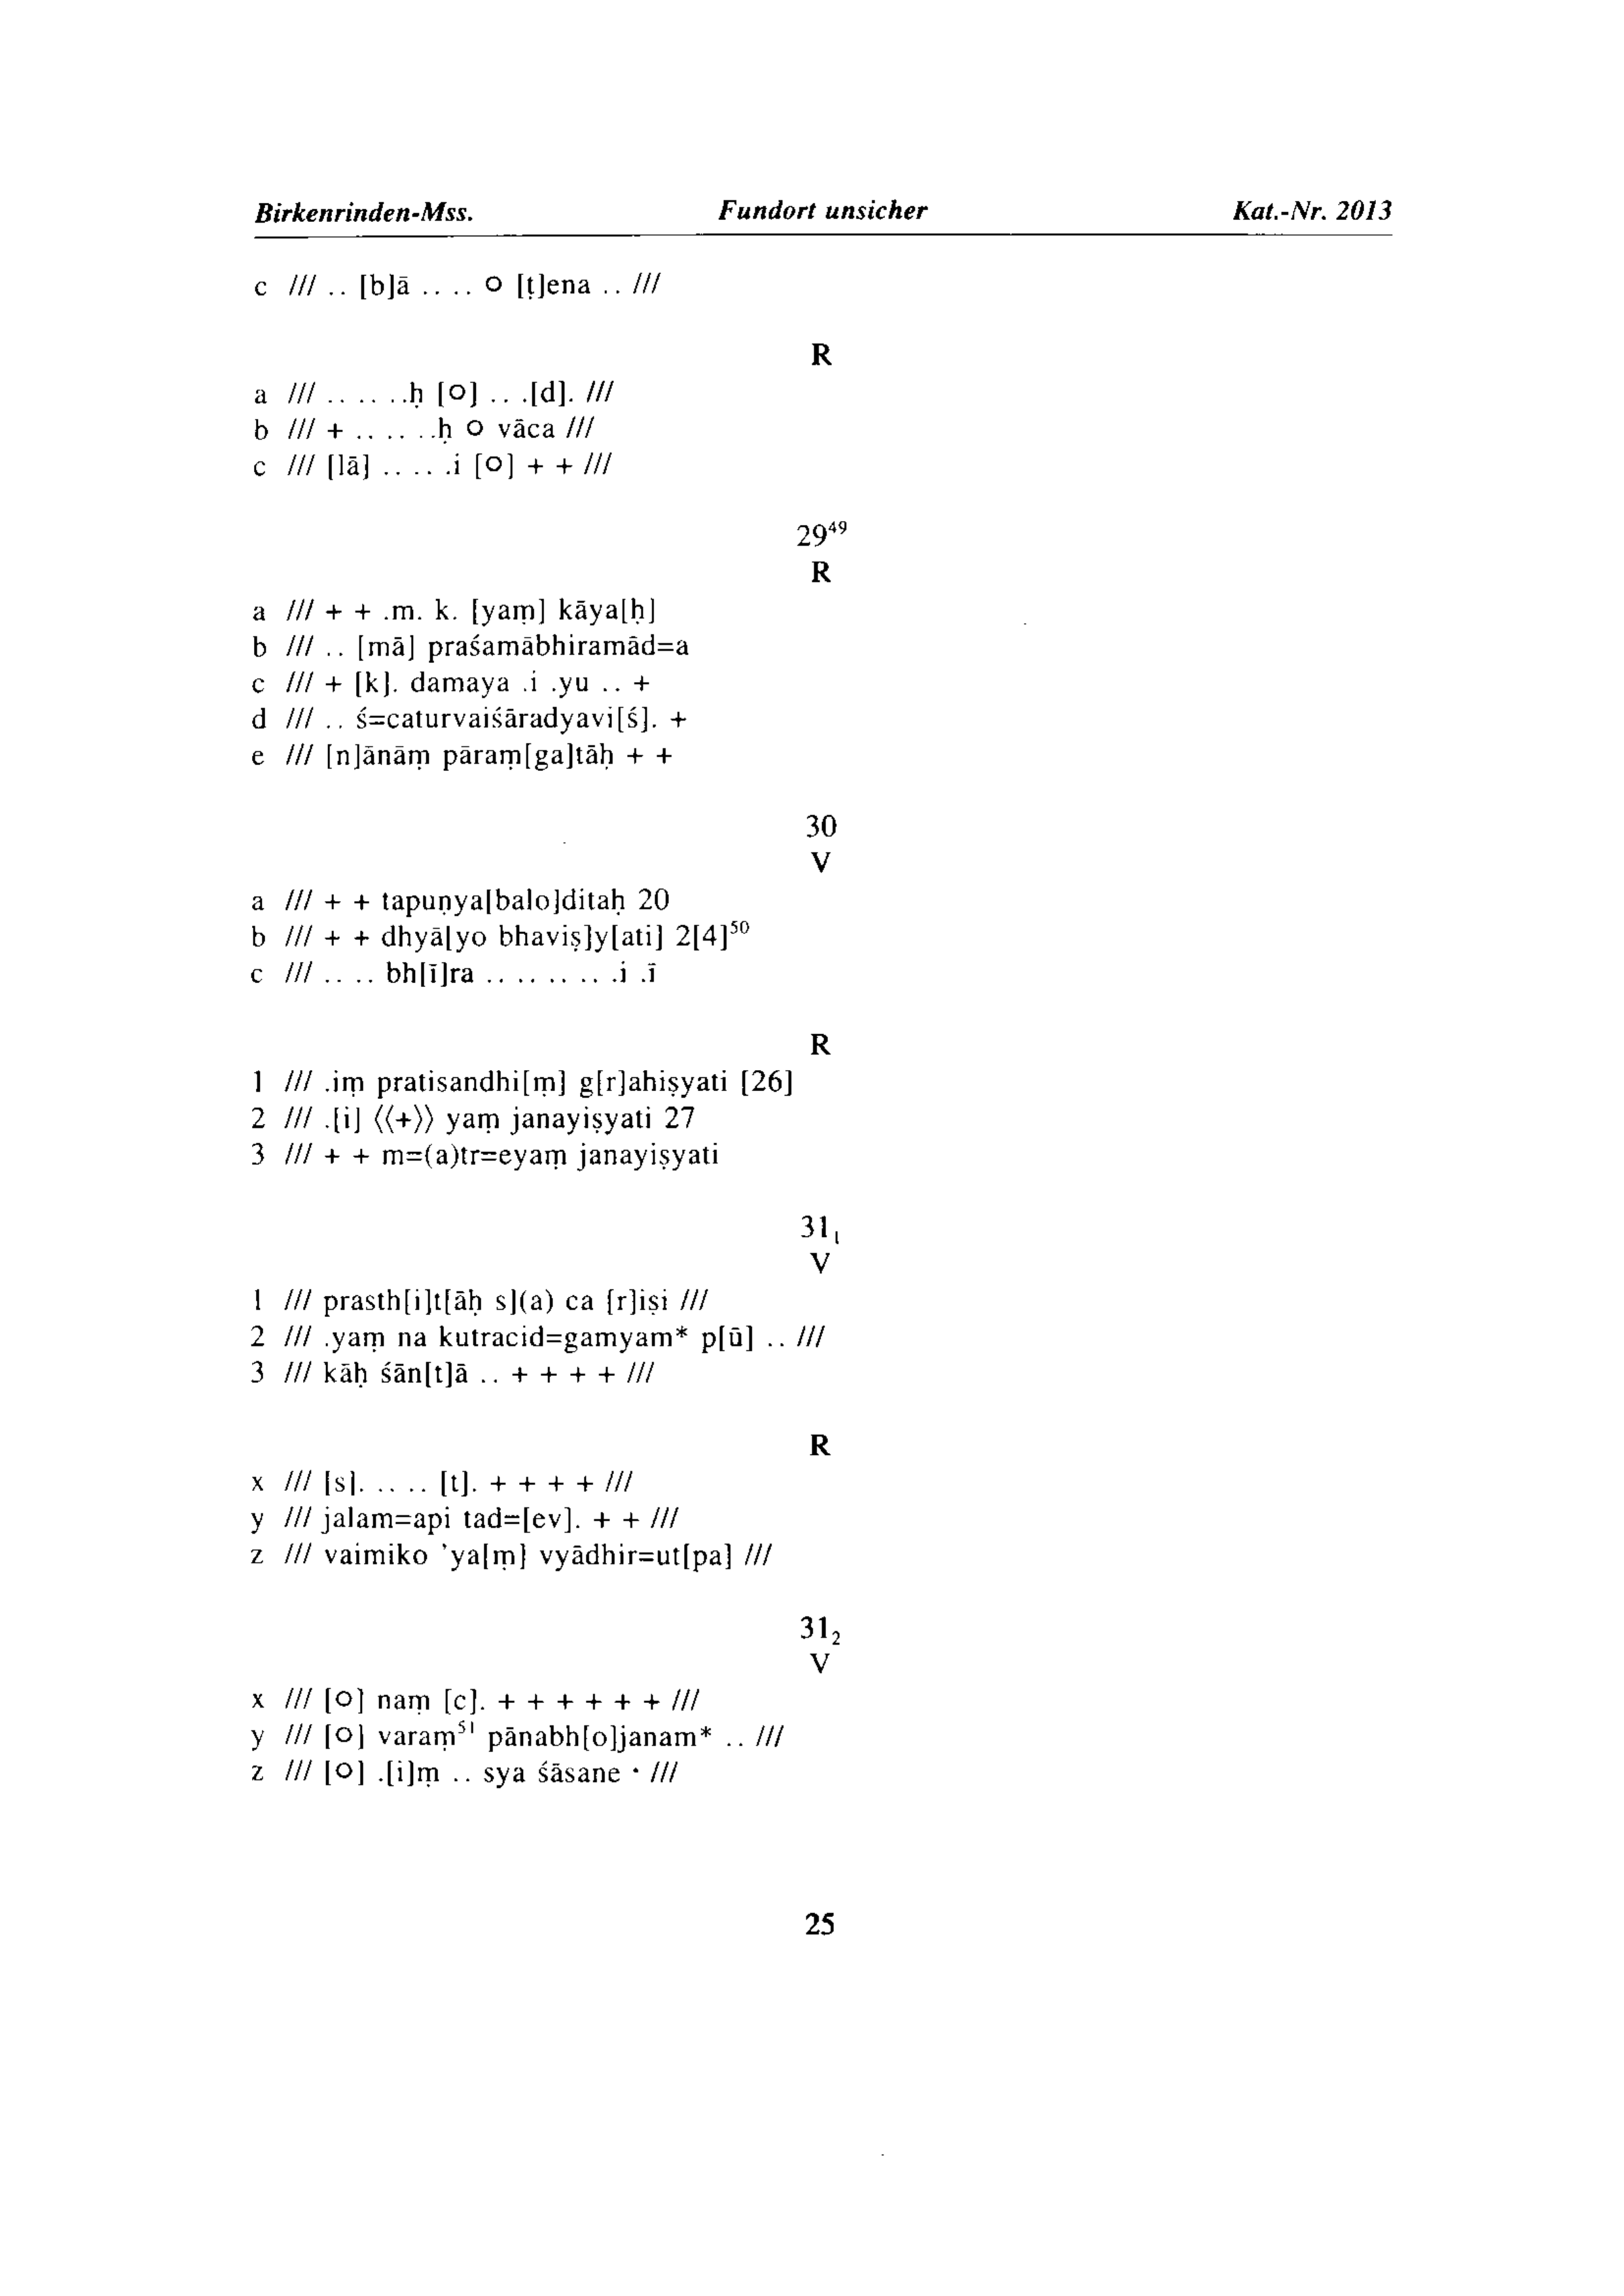 Birkenrinden-Mss. Fundort unsicher Kat.-Nr. 2013
c /// .. [b]ā .. .. O [ṭ]ena .. ///
R
a /// .. .. . .ḥ [O] .. .[d]. ///
b /// + .. .. . .ḥ O vāca ///
c /// [lā] .. .. .i [O] + + ///
29⁴⁹
R
a /// + + .m. k. [yaṃ] kāya[ḥ]
b /// .. [mā] praśamābhiramād=a
c /// + [k]. damaya .i .yu .. +
d /// .. ś=caturvaiśāradyavi[ś]. +
e /// [n]ānāṃ pāraṃ[ga]tāḥ + +
30
V
a /// + + tapuṇya[balo]ditaḥ 20
b /// + + dhyā[yo bhaviṣ]y[ati] 2[4]⁵⁰
c /// .. .. bh[ī]ra .. .. .. .. .i .ī
R
1 /// .iṃ pratisandhi[ṃ] g[r]ahiṣyati [26]
2 /// .[i] ⟨⟨+⟩⟩ yaṃ janayiṣyati 27
3 /// + + m=(a)tr=eyaṃ janayiṣyati
31₁
V
1 /// prasth[i]t[āḥ s](a) ca [r]iṣi ///
2 /// .yaṃ na kutracid=gamyam* p[ū] .. ///
3 /// kāḥ śān[t]ā .. + + + + ///
R
x /// [s]. .. .. [t]. + + + + ///
y /// jalam=api tad=[ev]. + + ///
z /// vaimiko 'ya[ṃ] vyādhir=ut[pa] ///
31₂
V
x /// [O] naṃ [c]. + + + + + + ///
y /// [O] varaṃ⁵¹ pānabh[o]janam* .. ///
z /// [O] .[i]ṃ .. sya śāsane · ///
25